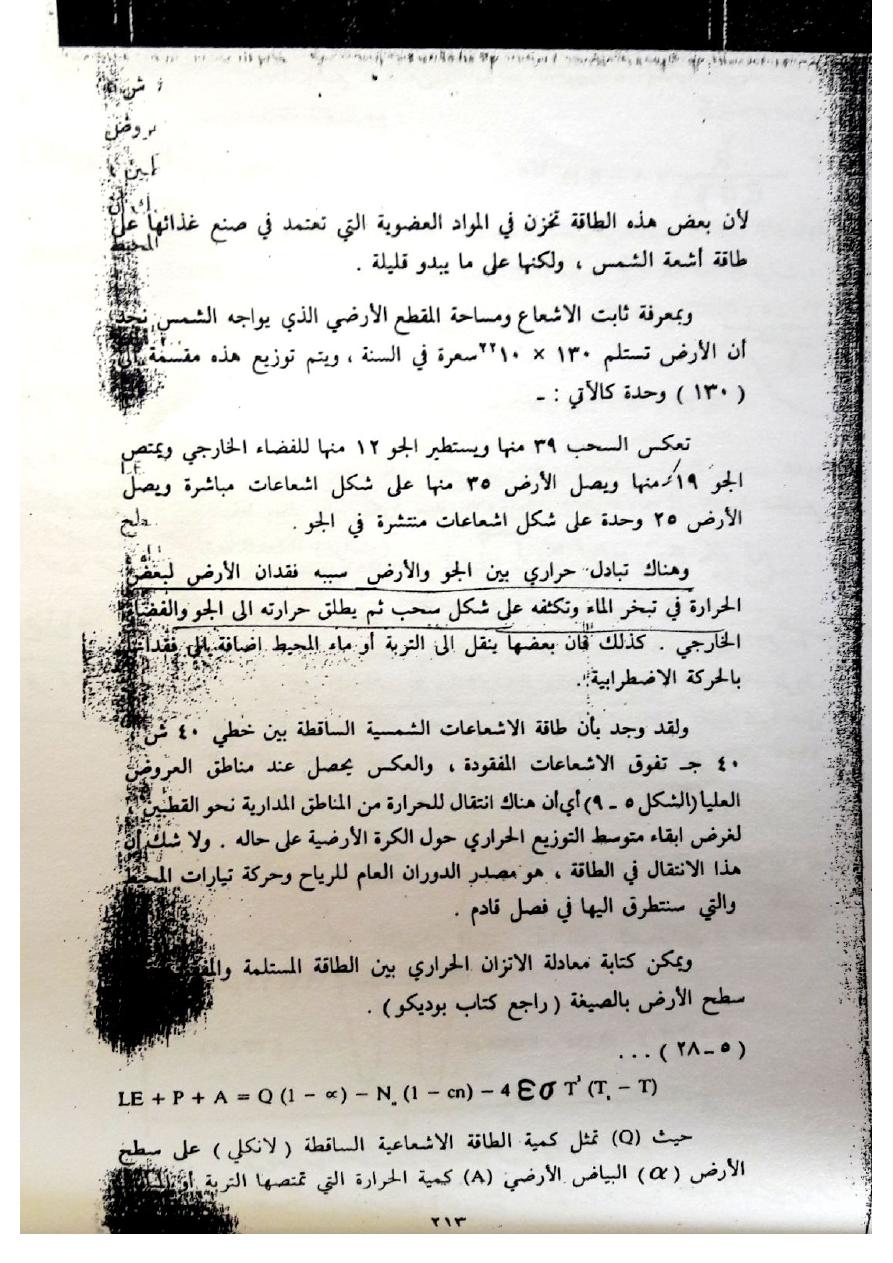 لأن بعض هذه الطاقة تخزن في المواد العضوية التي تعتمد في صنع غذائها على
طاقة أشعة الشمس ، ولكنها على ما يبدو قليلة .
وبمعرفة ثابت الاشعاع ومساحة المقطع الأرضي الذي يواجه الشمس نجد
أن الأرض تستلم ١٣٠ × ١٠٢٢ سعرة في السنة ، ويتم توزيع هذه مقسمة الى
( ١٣٠ ) وحدة كالآتي : ـ
تعكس السحب ٣٩ منها ويستطير الجو ١٢ منها للفضاء الخارجي ويمتص
الجو ١٩ منها ويصل الأرض ٣٥ منها على شكل اشعاعات مباشرة ويصل
الأرض ٢٥ وحدة على شكل اشعاعات منتشرة في الجو .
وهناك تبادل حراري بين الجو والأرض سببه فقدان الأرض لبعض
الحرارة في تبخر الماء وتكثفه على شكل سحب ثم يطلق حرارته الى الجو والفضاء
الخارجي . كذلك فان بعضها ينقل الى التربة أو ماء المحيط اضافة الى فقدانها
بالحركة الاضطرابية .
ولقد وجد بأن طاقة الاشعاعات الشمسية الساقطة بين خطي ٤٠ ش
٤٠ جـ تفوق الاشعاعات المفقودة ، والعكس يحصل عند مناطق العروض
العليا (الشكل ٥ ـ ٩) أي أن هناك انتقال للحرارة من المناطق المدارية نحو القطبين ،
لغرض ابقاء متوسط التوزيع الحراري حول الكرة الأرضية على حاله . ولا شك أن
هذا الانتقال في الطاقة ، هو مصدر الدوران العام للرياح وحركة تيارات المحيط
والتي سنتطرق اليها في فصل قادم .
ويمكن كتابة معادلة الاتزان الحراري بين الطاقة المستلمة
سطح الأرض بالصيغة ( راجع كتاب بوديكو ) .
( ٥ ـ ٢٨ ) ...
LE + P + A = Q (1 − ∝) − N₀ (1 − cn) − 4 εσ T³ (Tₛ − T)
حيث (Q) تمثل كمية الطاقة الاشعاعية الساقطة ( لانكلي ) على سطح
الأرض ( α ) البياض الأرضي (A) كمية الحرارة التي تمتصها التربة أو
٢١٣